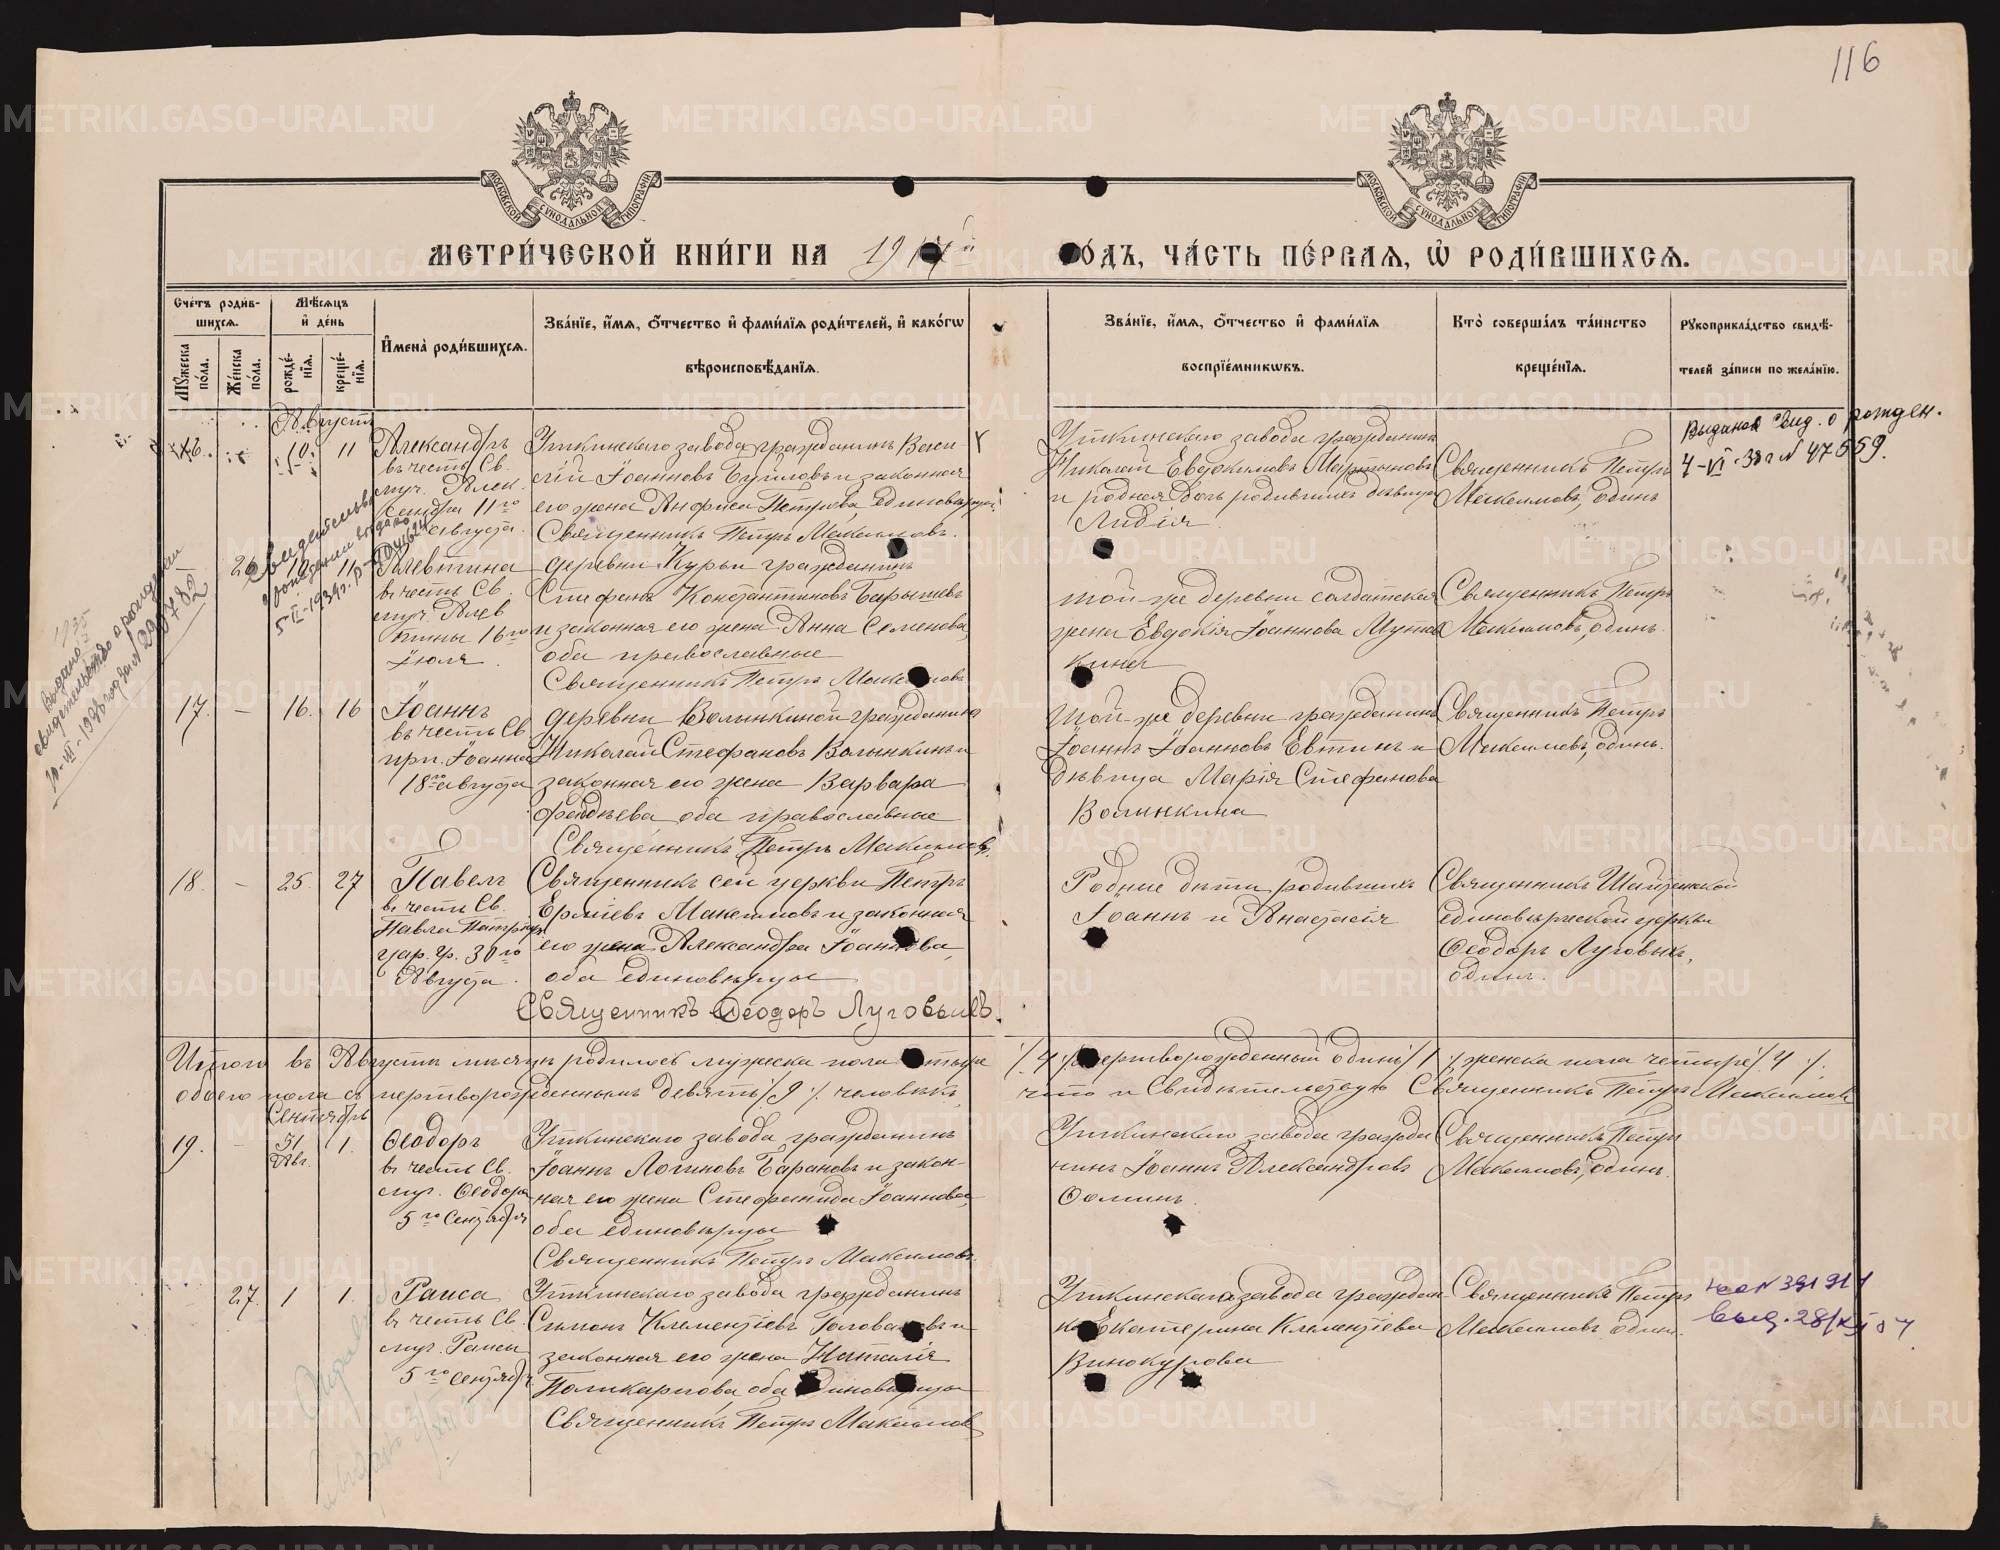 116
МЕТРИ́ЧЕСКОЙ КНИ́ГИ НА 1917й
ГО́ДЪ, ЧА́СТЬ ПЕ́РВАЯ, Ѡ҆ РОДИ́ВШИХСЯ.
Сче́тъ роди́в-
шихся.
Мѣ́сяцъ
и҆ де́нь
Му́жеска по́ла.
Же́нска по́ла.
рожде́-
нїя.
креще́-
нїя.
И҆мена̀ роди́вшихся.
Зва́нїе, и҆́мя, о҆́тчество и҆ фами́лїя роди́телей, и҆ како́гѡ
вѣроисповѣ́данїя.
Зва́нїе, и҆́мя, о҆́тчество и҆ фами́лїя
воспрїе́мникѡвъ.
Кто̀ соверша́лъ та́инство
креще́нїя.
Рꙋкоприкла́дство свидѣ́-
телей за́писи по жела́нїю.
Августъ
16. - 10 11
Александръ
въ честь Св.
муч. Алек
сандра 11го
августа.
Уткинскаго завода гражданинъ Васи
лій Іоанновъ и законная
его жена Анфиса Петрова, единовѣрцы
Священникъ Петръ Максимовъ.
Уткинскаго завода гражданинъ
Николай Евдокимовъ Мартыновъ
и родная дочь родившихъ дѣвица
Лидія
Священникъ Петръ
Максимовъ, одинъ
Выдана свид. о рожден.
4-VI-38г N 47559.
26 10 11
Алевтина
въ честь Св.
муч. Алев
тины 16го
Іюля.
деревни Курьи гражданинъ
Стефанъ Константиновъ Барышевъ
и законная его жена Анна Семенова,
оба православные
Священникъ Петръ Максимовъ
той-же деревни солдатская
жена Евдокія Іоаннова
кина
Священникъ Петръ
Максимовъ, одинъ
17. - 16. 16
Іоаннъ
въ честь Св
прп. Іоанна
18го августа
деревни Волынкиной гражданинъ
Николай Стефановъ Волынкинъ и
законная его жена Варвара
Фаддѣева оба православные
Священникъ Петръ Максимовъ.
той-же деревни гражданинъ
Іоаннъ Іоанновъ Евтинъ и
дѣвица Марія Стефанова
Волынкина
Священникъ Петръ
Максимовъ, одинъ.
18. - 25. 27
Павелъ
въ честь Св.
Павла Патріар.
цар. гр. 30го
Августа.
Священникъ сей церкви Петръ
Ермiевъ Максимовъ и законная
его жена Александра Іоаннова,
оба единовѣрцы
Священникъ Ѳеодоръ Луговыхъ.
Родные дѣти родившихъ
Іоаннъ и Анастасія
Священникъ Шайтанской
единовѣрческой церкви
Ѳеодоръ Луговыхъ,
одинъ.
Итого въ Августѣ мѣсяцѣ родилось мужеска пола четыре /.4./ мертворожденный одинъ /1./ женска пола четыре /.4./.
обоего пола съ мертворожденнымъ девять /.9./. человѣкъ, что и свидѣтельствую Священникъ Петръ Максимовъ
Сентябрь
19. - 31 Авг. 1.
Ѳеодоръ
въ честь Св.
муч. Ѳеодора
5го Сентября
Уткинскаго завода гражданинъ
Іоаннъ Логиновъ Барановъ и закон-
ная его жена Стефанида Іоаннова,
оба единовѣрцы
Священникъ Петръ Максимовъ.
Уткинскаго завода гражда
нинъ Іоаннъ Александровъ
Ѳоминъ.
Священникъ Петръ
Максимовъ, одинъ.
27. 1 1.
Раиса
въ честь Св.
муч. Раисы
5го Сентября.
Уткинскаго завода гражданинъ
Симонъ Клементіевъ Головановъ и
законная его жена Наталія
Поликарпова, оба единовѣрцы
Священникъ Петръ Максимовъ
Уткинскаго завода граждан-
ка Екатерина Клементіева
Винокурова
Священникъ Петръ
Максимовъ один.
Выдано
свидетельство о рождении
свидетельство
о рождении выдано
5-II-1939г.
METRIKI.GASO-URAL.RU